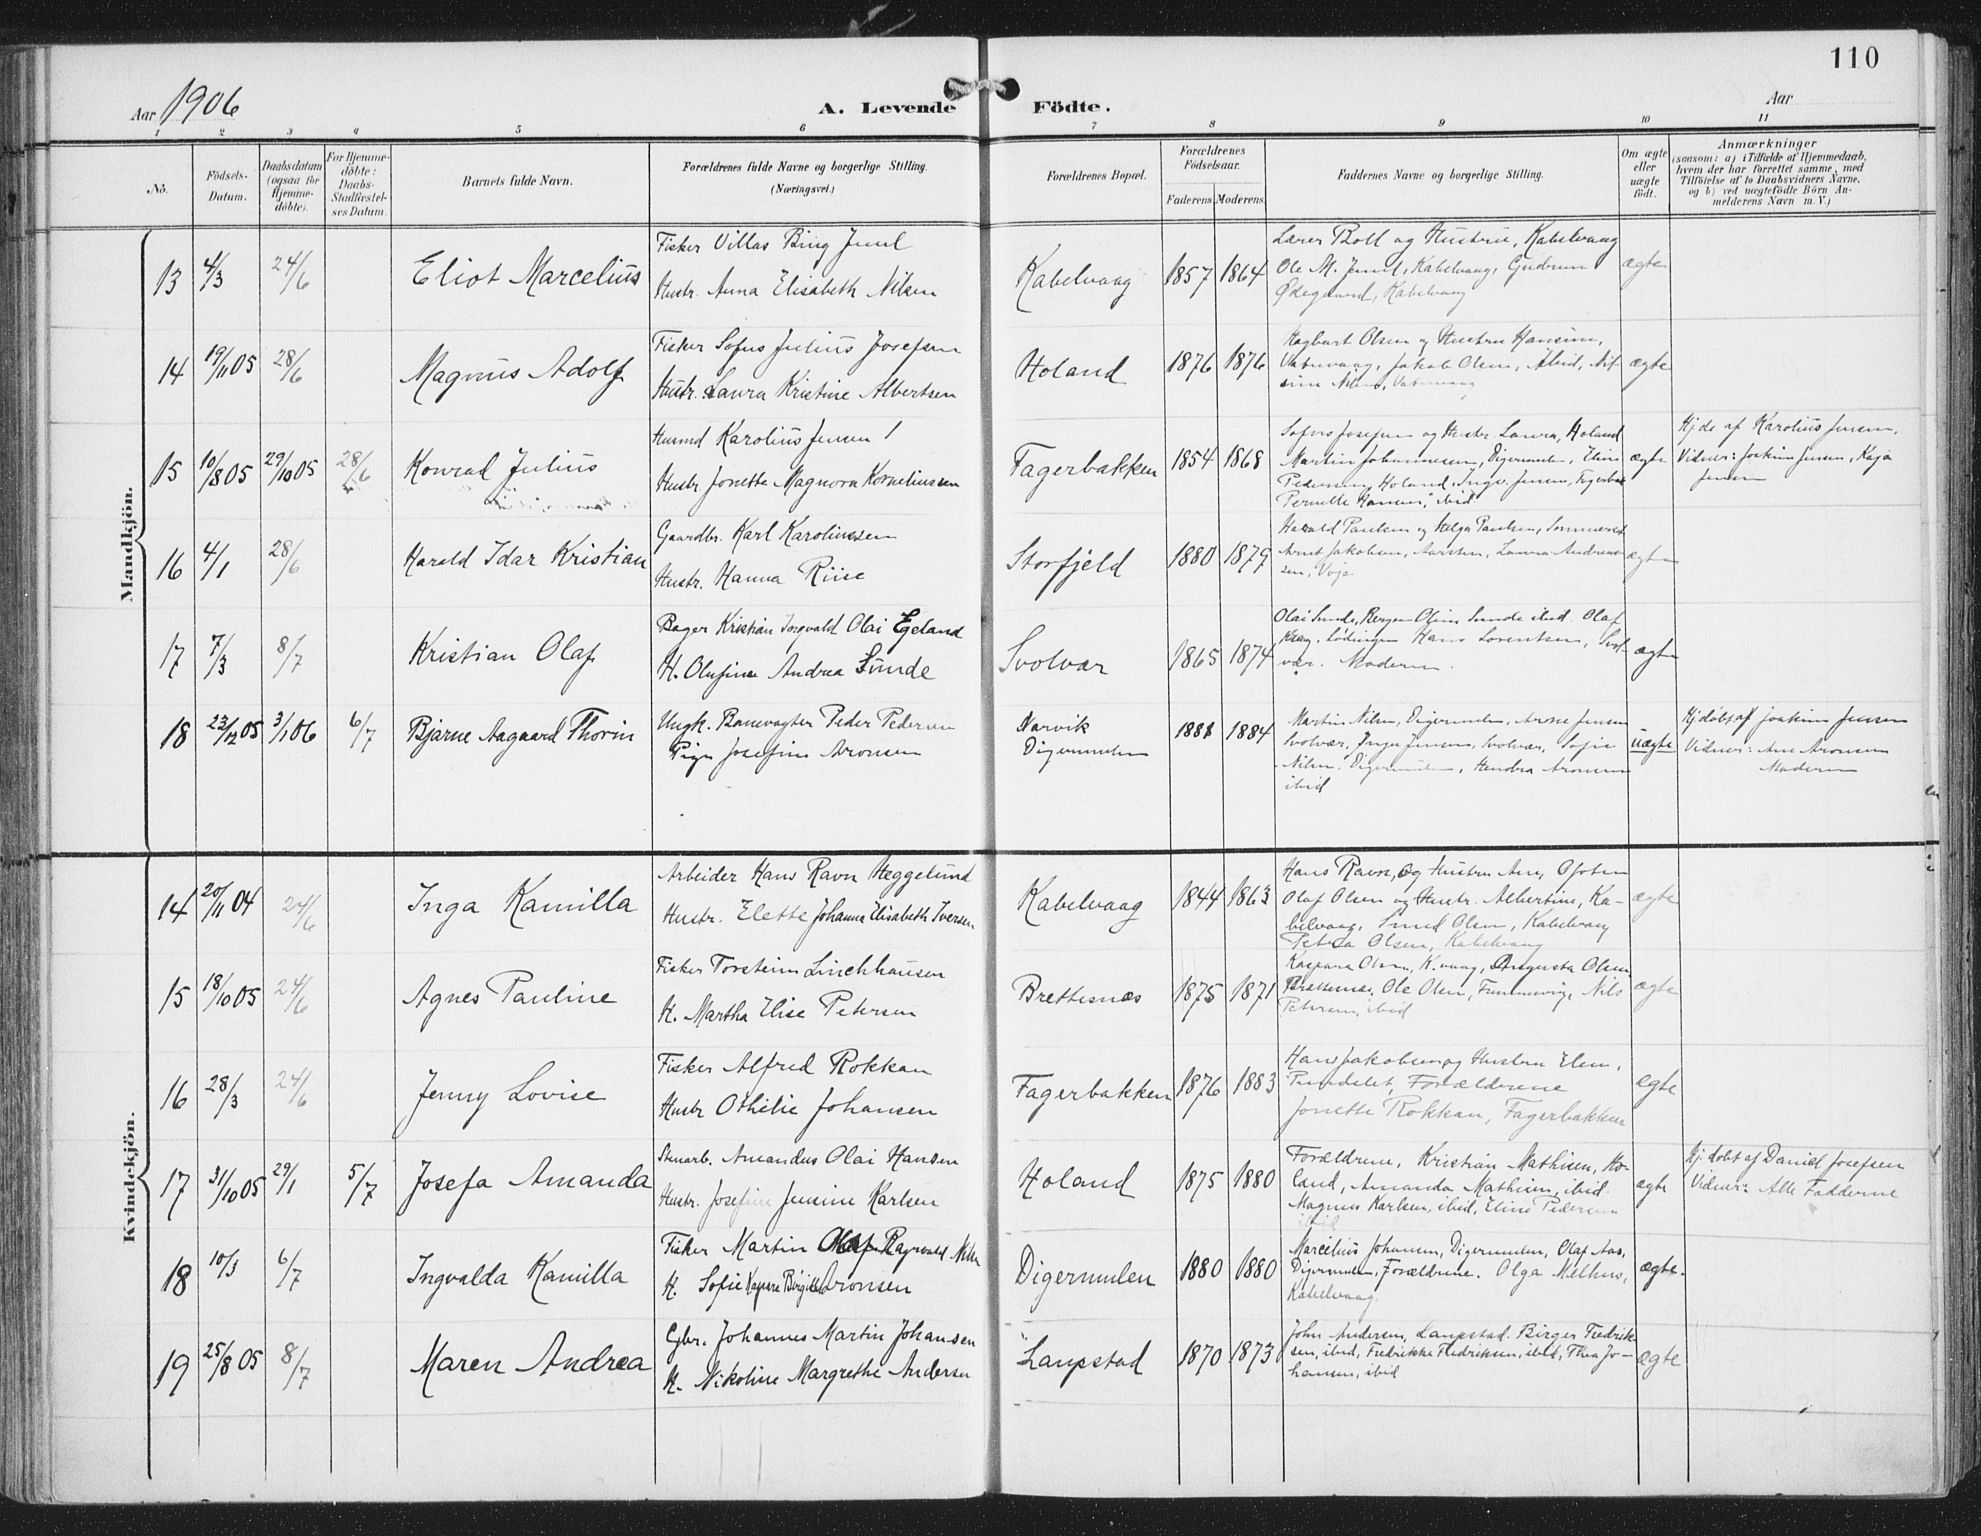 110
Aar 1906
A. Levende Födte.
Aar
1 2 3 4 5 6 7 8 9 10 11
No.
Födsels-Datum.
Daabsdatum (ogsaa for Hjemme-döbte).
For Hjemme-döbte: Daabs-Stadfæstel-ses Datum.
Barnets fulde Navn.
Forældrenes fulde Navne og borgerlige Stilling. (Næringsvei.)
Forældrenes Bopæl.
Forældrenes Födselsaar.
Faderens. Moderens.
Faddernes Navne og borgerlige Stilling.
Om ægte eller uægte födt.
Anmærkninger
(saasom: a) i Tilfælde af Hjemmedaab,
hvem der har forrettet samme, med
Tilföielse af to Daabsvidners Navne,
og b) ved uægtefödte Börn An-
melderens Navn m. V.)
Mandkjön.
13 4/3 24/6 Eliot Marcelius
Fisker Villas Bing Juul
Hustr. Anna Elisabeth Nilsen
Kabelvaag 1857 1864
Lærer Boll og Hustru, Kabelvaag
Ole M. Juul, Kabelvaag, Gudrun
Ødegaard, Kabelvaag
ægte
14 19/11 05 28/6 Magnus Adolf
Fisker Sofus Julius Josefsen
Hustr. Laura Kristine Albertsen
Holand 1876 1876
Hagbart Olsen og Hustru Hansine,
Vatervaag, Jakob Olsen, ibid,
Nilsen, Vatervaag
ægte
15 10/8 05 29/10 05 28/6 Konrad Julius
Husmd Karolius Jensen
Hustr Jonette Magnora Korneliussen
Fagerbakken 1854 1868
Sofus Josefsen og Hustr Laura, Holand
Martin Johannesen, Digermulen, Eline
Pedersen, Holand, Inga Jensen, Fagerbak
Pernille Hansen, ibid
ægte
Hjdø af Karolius Jensen.
Vidner: Joakim Jensen, Kaja
Jensen
16 4/1 28/6 Harald Idar Kristian
Gaardbr. Karl Karoliussen
Hustr. Hanna Riise
Storfjeld 1880 1879
Harald Paulsen og Helga Paulsen,
Arnt Jakobsen, Aarsten, Laura Andreas-
sen,
ægte
17 7/3 8/7 Kristian Olaf
Bager Kristian Ingvald Olai Egeland
H. Olufine Andrea Sunde
Svolvær 1865 1874
Olai Sunde, Bergen Oline Sunde ibid. Olaf
Krog, Lödingen Hans Lorentsen, Svol-
vær. Moderen.
ægte
18 23/12 05 3/1 06 6/7 Bjarne Aagaard Thorin
Ungk. Banevogter Peder Pedersen
Pige Josefine Aronsen
Narvik
Digermulen
1881 1884
Martin Nilsen, Digermulen, Arne Jensen
Svolvær, Inga Jensen, Svolvær, Sofie
Nilsen, Digermulen, Hendrea Aronsen
ibid
uægte
Hjdöbt af Joakim Jensen
Vidner: Ane Aronsen
Moderen
Kvindekjön.
14 20/11 04 24/6 Inga Kamilla
Arbeider Hans Ravn Heggelund
Hustr. Elette Johanna Elisabeth Iversen
Kabelvaag 1844 1863
Hans Ravn, og Hustru Ane, Ofoten
Olaf Olsen og Hustr. Albertine, Ka-
belvaag, Olsen, Kabelvaag
Petra Olsen, Kabelvaag
ægte
15 18/10 05 24/6 Agnes Pauline
Fisker Torstein Linchhausen
H. Martha Elise Petersen
Brettesnæs 1875 1871
Kaspara Olsen, K.vaag, Augusta Olsen
Brettesnæs, Ole Olsen, Nils
Petersen, ibid
ægte
16 28/3 24/6 Jenny Lovise
Fisker Alfred Rokkan
Hustr Othilie Johansen
Fagerbakken 1876 1883
Hans Jakobsen og Hustru Elen,
Pundslet, Forældrene
Jonette Rokkan, Fagerbakken
ægte
17 31/10 05 29/1 5/7 Josefa Amanda
Stenarb. Amandus Olai Hansen
Hustr. Josefine Jensine Karlsen
Holand 1875 1880
Forældrene, Kristian Mathisen, Ho-
land, Amanda Mathisen, ibid.
Magnus Karlsen, ibid, Eline Pedersen
ibid
ægte
Hj. döbt af Daniel Josefsen
Vidner: Alle Fadderne
18 10/3 6/7 Ingvalda Kamilla
Fisker Martin Olaf Ragnvald Nilsen
H. Sofie Kaspara Birgitte Aronsen
Digermulen 1880 1880
Marcelius Johansen, Digermulen, Olaf Aas,
Digermulen, Forældrene. Olga Melhus,
Kabelvaag.
ægte.
19 25/8 05 8/7 Maren Andrea
Gbr. Johannes Martin Johansen
H. Nikoline Margrethe Andersen
Laupstad 1870 1873
John Andersen, Laupstad. Birger Fredrik-
sen, ibid, Fredrikke Fredriksen, ibid, Thea Jo-
hansen, ibid
ægte